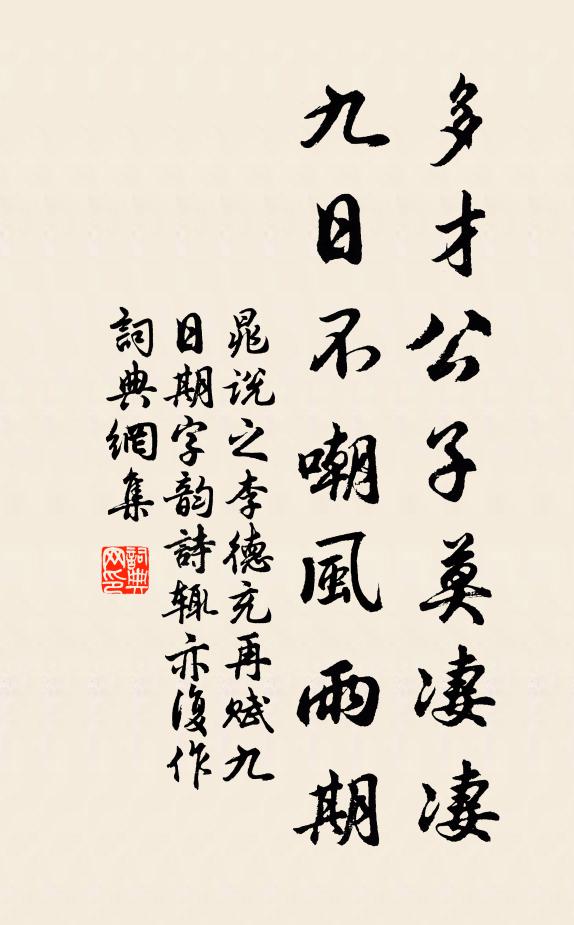 多才公子莫凄凄
九日不嘲風雨期
晁说之李德充再赋九
日期字韵詩辄亦復作
詞典網集
詞典网印